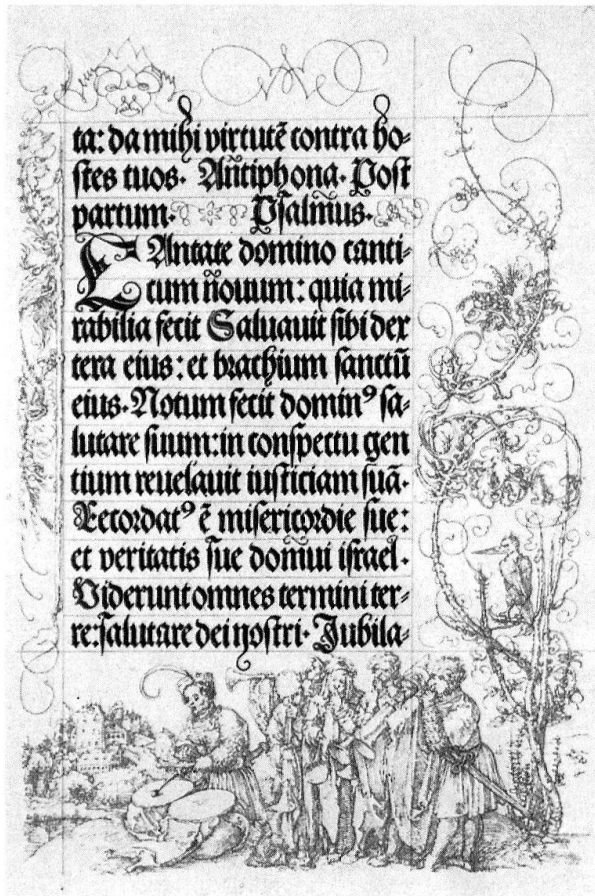 ta: da mihi virtutē contra ho-
stes tuos. Añtiphona. Post
partum. Psalm̃us.
CAntate domino canti-
cum ñouum: quia mi-
rabilia fecit Saluauit sibi dex
tera eius: et brachium sanctū
eius. Notum fecit dominꝰ sa-
lutare suum: in conspectu gen
tium reuelauit iusticiam suā.
Recordatꝰ ē misericordie sue:
et veritatis sue domui israel.
Viderunt omnes termini ter-
re: salutare dei nostri. Jubila-